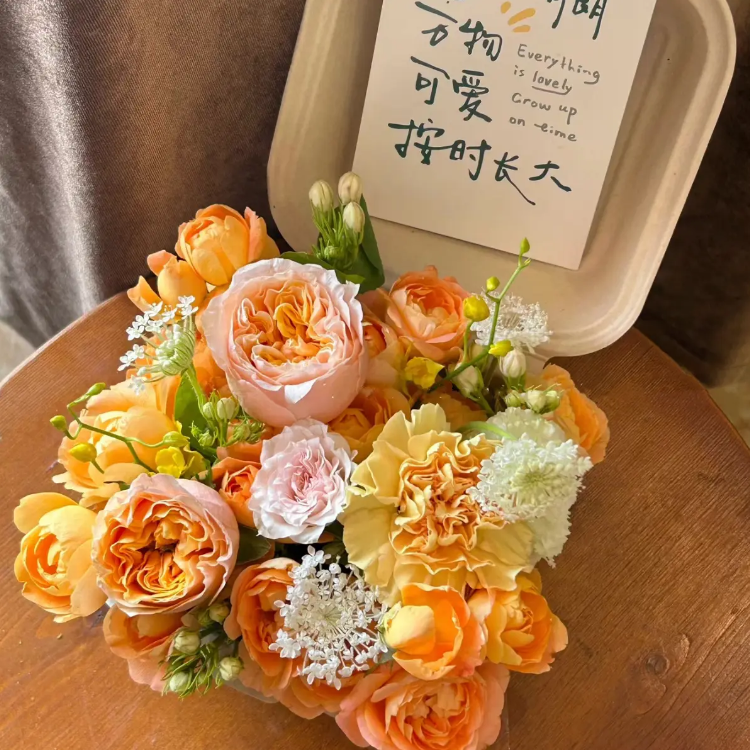 万物
可爱
按时长大
Everything
is lovely
Grow up
on time